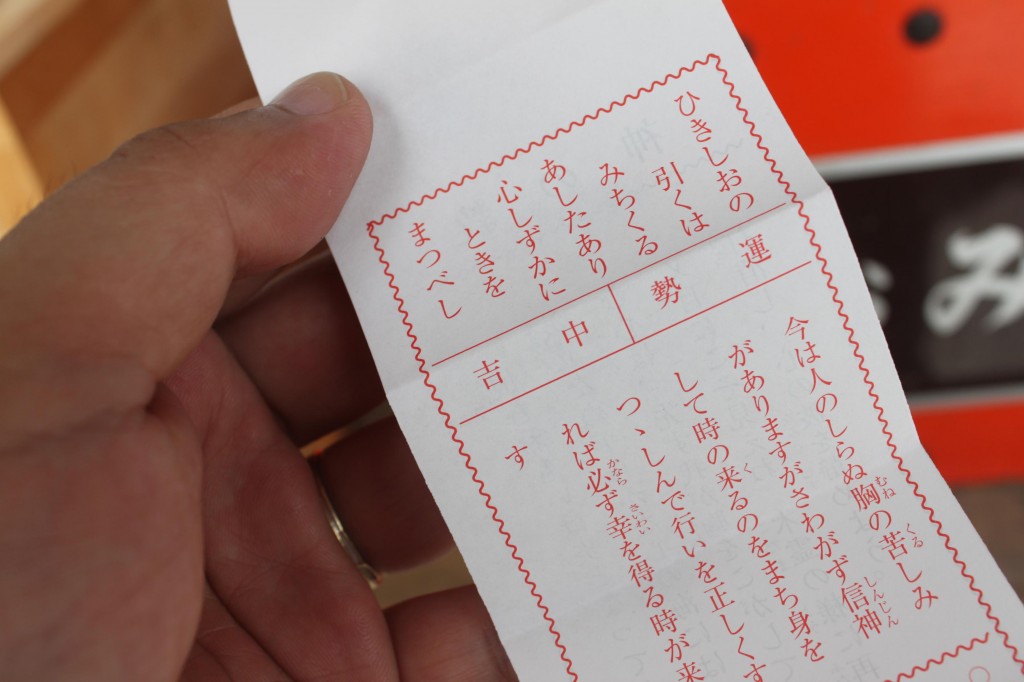 ひきしおの
引くは
みちくる
あしたあり
心しずかに
ときを
まつべし
運勢
中吉
今は人のしらぬ胸の苦しみ
がありますがさわがず信神
して時の来るのをまち身を
つゝしんで行いを正しくす
れば必ず幸を得る時が来
す
むね
くる
しんじん
く
かなら
さいわい
み